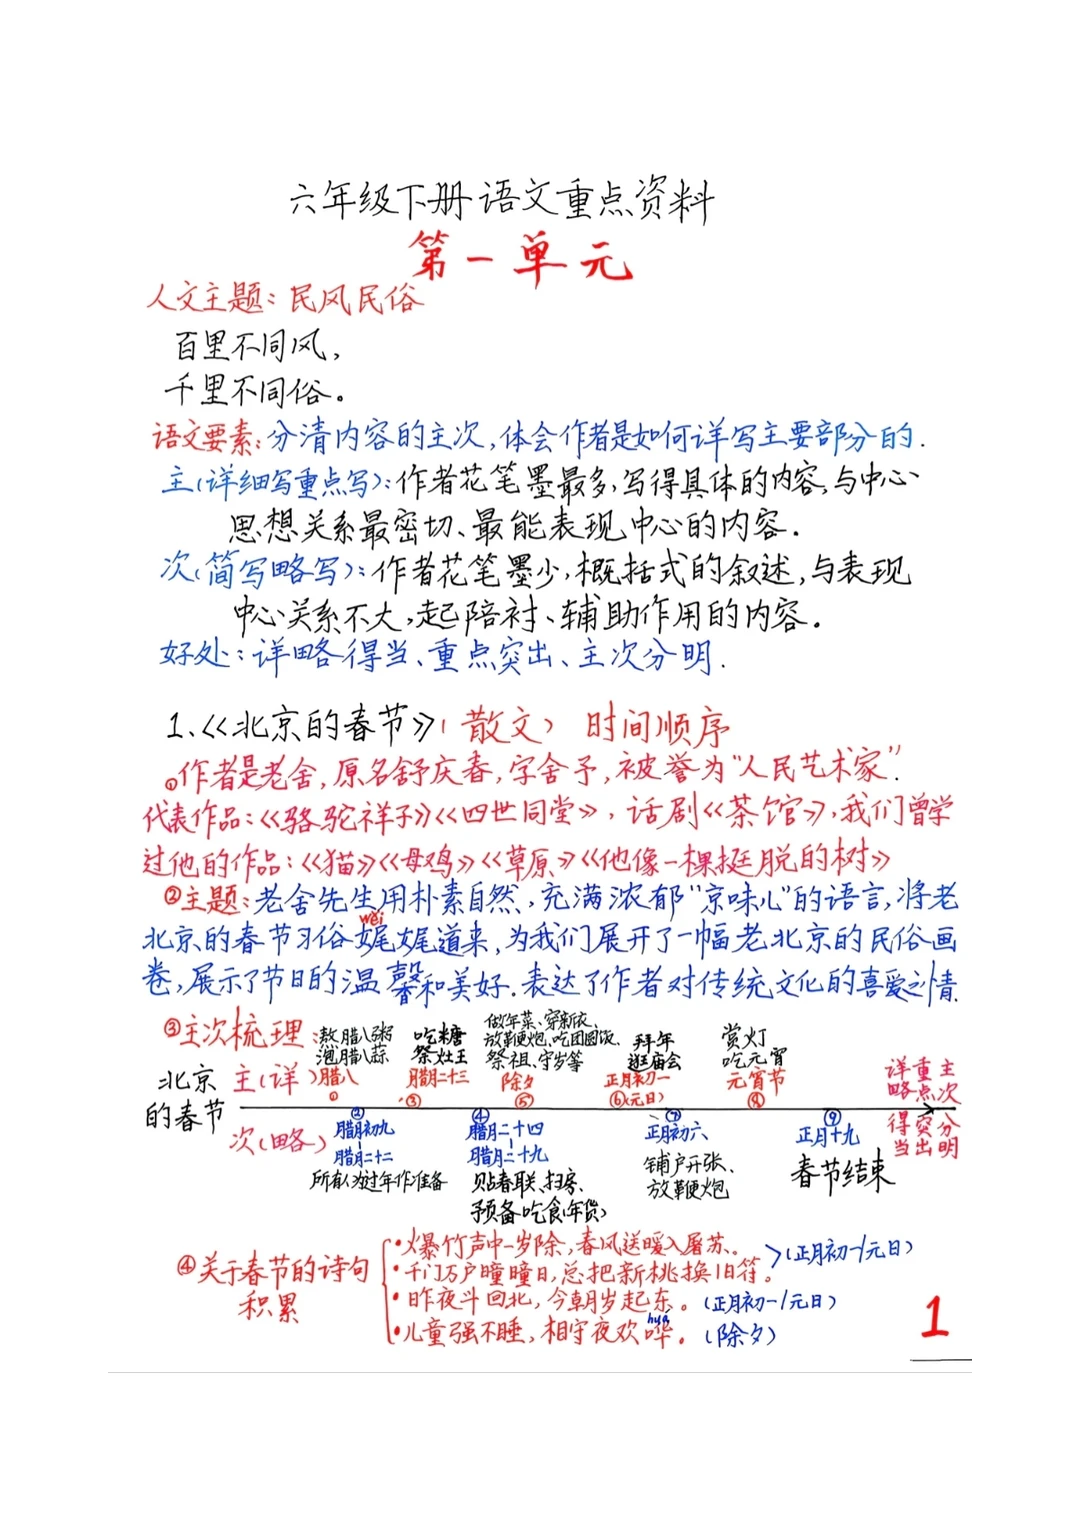 六年级下册语文重点资料
第一单元
人文主题：民风民俗
百里不同风，
千里不同俗。
语文要素：分清内容的主次，体会作者是如何详写主要部分的．
主（详细写重点写）：作者花笔墨最多，写得具体的内容，与中心
思想关系最密切、最能表现中心的内容．
次（简写略写）：作者花笔墨少，概括式的叙述，与表现
中心关系不大，起陪衬、辅助作用的内容．
好处：详略得当、重点突出、主次分明．
1、《北京的春节》（散文） 时间顺序
①作者是老舍，原名舒庆春，字舍予，被誉为“人民艺术家”．
代表作品：《骆驼祥子》《四世同堂》，话剧《茶馆》，我们曾学
过他的作品：《猫》《母鸡》《草原》《他像一棵挺脱的树》
②主题：老舍先生用朴素自然、充满浓郁“京味儿”的语言，将老
wěi
北京的春节习俗娓娓道来，为我们展开了一幅老北京的民俗画
卷，展示了节日的温馨和美好．表达了作者对传统文化的喜爱之情．
③主次梳理：
熬腊八粥 吃糖 做年菜、穿新衣、 拜年 赏灯
泡腊八蒜 祭灶王 放鞭炮、吃团圆饭、 逛庙会 吃元宵
祭祖、守岁等
北京的春节
主（详） 腊八 腊月二十三 除夕 正月初一 元宵节 详略得当 重点突出 主次分明
① ③ ⑤ ⑥（元日） ⑧
② ④ ⑦ ⑨
次（略） 腊月初九 腊月二十四 正月初六 正月十九
腊月二十二 腊月二十九 铺户开张、 春节结束
所有人为过年作准备 贴春联、扫房、 放鞭炮
预备吃食（年货）
④关于春节的诗句
积累
•爆竹声中一岁除，春风送暖入屠苏。
•千门万户曈曈日，总把新桃换旧符。 （正月初一/元日）
•昨夜斗回北，今朝岁起东。（正月初一/元日）
huá
•儿童强不睡，相守夜欢哗。（除夕）
1